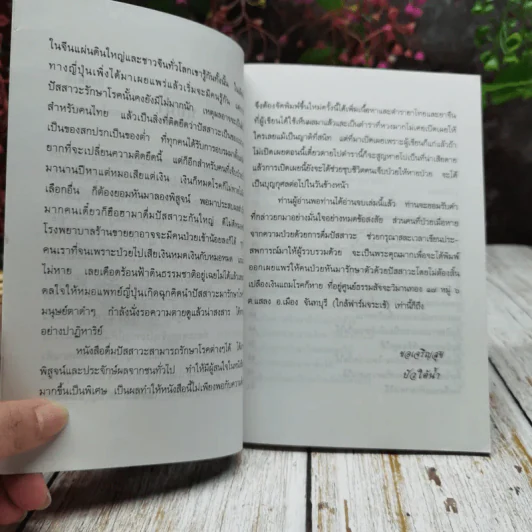 ในจีนแผ่นดินใหญ่และชาวจีนทั่วโลกเขารู้กันทั้งนั้น
ทางญี่ปุ่นเพิ่งได้มาเผยแพร่แล้วเริ่มจะมีคนรู้กัน
ปัสสาวะรักษาโรคนั้นคงยังมีไม่มากนัก เหตุผลอาจจะ
สำหรับคนไทย แล้วเป็นสิ่งที่คิดยึดว่าปัสสาวะเป็น
เป็นของสกปรกเป็นของต่ำ ที่ทุกคนได้รับการอบรมมา
ยากที่จะเปลี่ยนความคิดยึดนี้ แต่ก็อีกสำหรับคนที่เจ็บป่วย
มานานปีหาแต่หมอเสียแต่เงิน เงินก็หมดโรคก็ไม่หาย
เลือกอื่น ก็ต้องยอมหันมาลองพิสูจน์
มากคนเดี๋ยวก็ฮือฮามาดื่มปัสสาวะกันใหญ่
โรงพยาบาลร้านขายยาอาจจะมีคนป่วยเข้าน้อยลงก็ได้
คนเราที่จนเพราะป่วยไปเสียเงินหมดเงินกับหมอหมด
ไม่หาย เลยเดือดร้อนฟ้าดินธรรมชาติอยู่เฉยไม่ได้แล้ว
ดลใจให้หมอแพทย์ญี่ปุ่นเกิดฉุกคิดนำปัสสาวะมารักษา
มนุษย์ตาดำๆ กำลังนั่งรอความตายดูแล้วน่าสงสาร
อย่างปาฏิหาริย์
หนังสือดื่มปัสสาวะสามารถรักษาโรคต่างๆได้
พิสูจน์และประจักษ์ผลจากชนทั่วไป ทำให้มีผู้สนใจใน
มากขึ้นเป็นพิเศษ เป็นผลทำให้หนังสือนี้ไม่เพียงพอกับความ
จึงต้องจัดพิมพ์ขึ้นใหม่ครั้งนี้ได้เพิ่มเนื้อหาและตำรายาไทยและยาจีน
ที่ผู้เขียนได้ใช้เห็นผลมาแล้วและเป็นตำราที่หวงมากไม่เคยเปิดเผยให้
ใครเลยแม้เป็นญาติก็สนิท แต่ที่มาเปิดเผยเพราะผู้เขียนก็แก่แล้วถ้า
ไม่เปิดเผยตอนนี้เดี๋ยวตายไปตำรานี้ก็จะสูญหายไปเป็นที่น่าเสียดาย
แล้วการเปิดเผยนี้ยังจะได้ช่วยชุบชีวิตคนเจ็บป่วยให้หายป่วย จะได้
เป็นบุญกุศลต่อไปในวันข้างหน้า
ท่านผู้อ่านพอท่านได้อ่านจบเล่มนี้แล้ว ท่านจะยอมรับคำ
ที่กล่าวยกมาอย่างมั่นใจอย่างหมดข้อสงสัย ส่วนคนที่ป่วยเมื่อหาย
จากความป่วยด้วยการดื่มปัสสาวะ ช่วยกรุณาสละเวลาเขียนประ-
สพการณ์มาให้ผู้รวบรวมด้วย จะเป็นพระคุณมากเพื่อจะได้พิมพ์
ออกเผยแพร่ให้คนป่วยหันมารักษาตัวด้วยปัสสาวะโดยไม่ต้องสิ้น
เปลืองเงินแถมโรคก็หาย ที่อยู่ศูนย์ธรรมสังจะวิมานทอง ๑๗ หมู่ ๖
ต.แสลง อ.เมือง จันทบุรี (ใกล้ฟาร์มจระเข้) เท่านี้ก็ถึง
ขอเจริญสุข
บัวใต้น้ำ